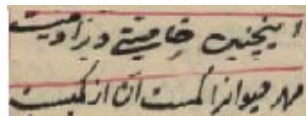 اینچنین خاصیتی در آدمیست
مهر حیوانرا کمست آن از کمیست